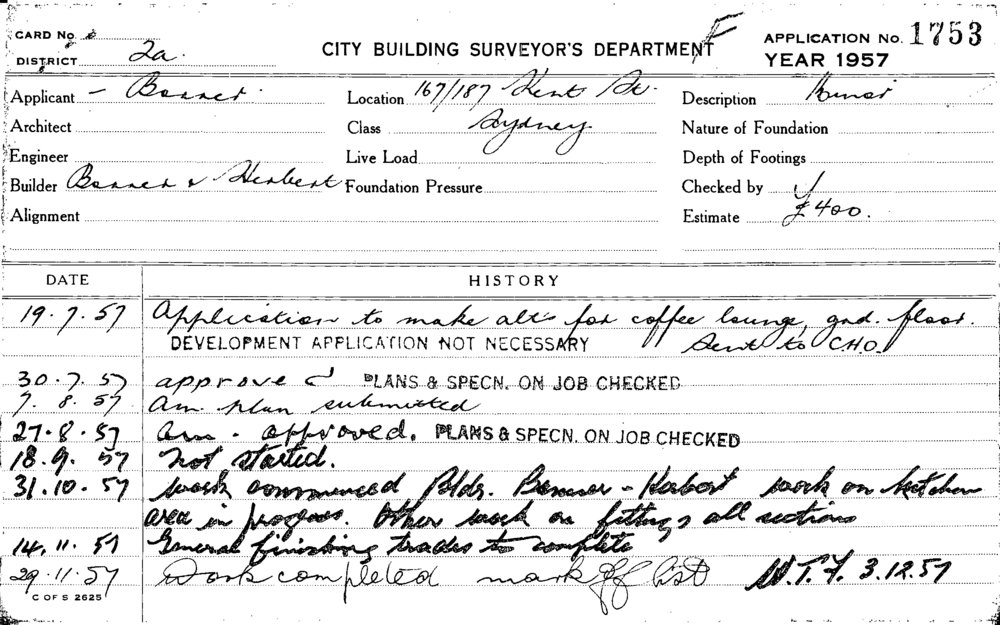 CARD No.
DISTRICT 2a.
CITY BUILDING SURVEYOR'S DEPARTMENT F
APPLICATION No. 1753
YEAR 1957
Applicant - Bonner.
Location 167/187 Kent St.
Description
Architect
Class Sydney.
Nature of Foundation
Engineer
Live Load
Depth of Footings
Builder Bonner & Herbert
Foundation Pressure
Checked by
Alignment
Estimate £400.
DATE
HISTORY
19.7.57 Application to make alts for coffee lounge, gnd. floor.
DEVELOPMENT APPLICATION NOT NECESSARY Sent to C.H.O.
30.7.57 approved PLANS & SPECN. ON JOB CHECKED
7.8.57 Am. plan submitted
27.8.57 Am. approved. PLANS & SPECN. ON JOB CHECKED
18.9.57 Not started.
31.10.57 Work commenced Bldr. Bonner - Herbert work on kitchen
area in progress. Other work on fittings all sections
14.11.57 General finishing trades to complete
29.11.57 Work completed mark off list W.T.F. 3.12.57
C OF S 2625